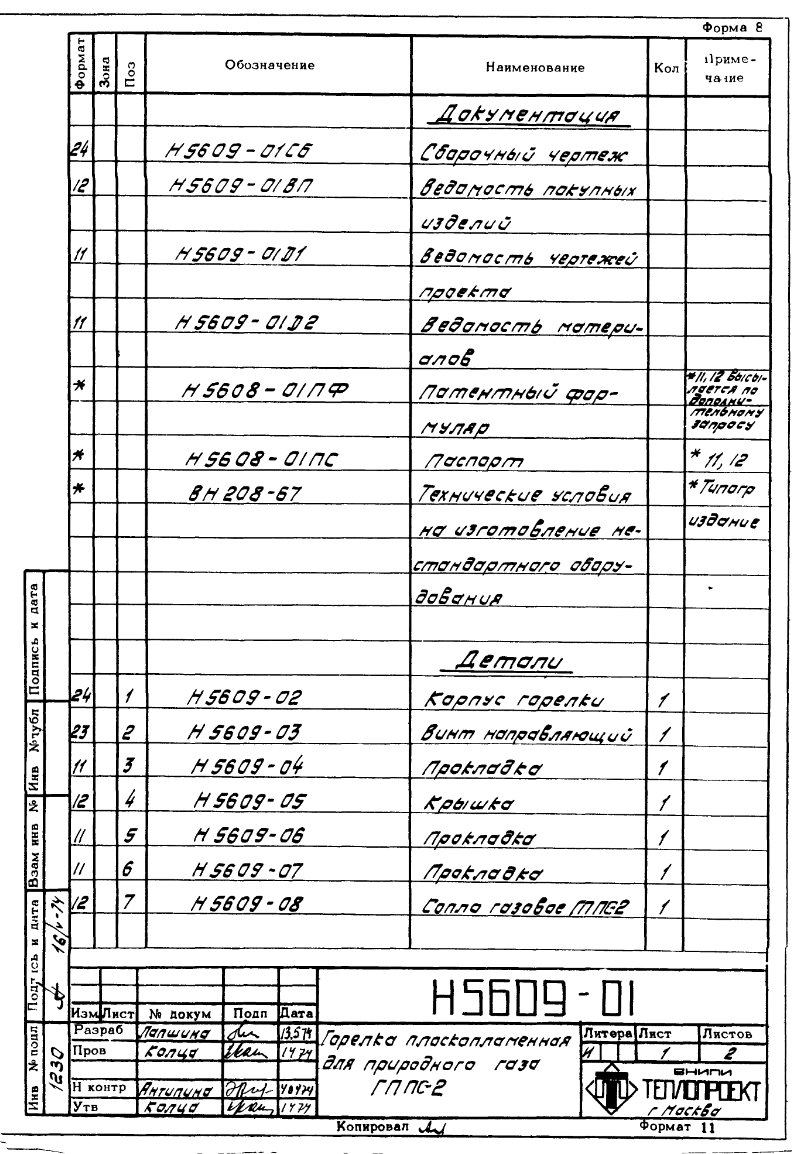 Форма 8
Формат Зона Поз Обозначение Наименование Кол Приме-
чание
Документация
24 Н5609-01СБ Сборочный чертеж
12 Н5609-01ВП Ведомость покупных
изделий
11 Н5609-01Д1 Ведомость чертежей
проекта
11 Н5609-01Д2 Ведомость матери-
алов
* Н5608-01ПФ Патентный фор-
муляр
*11,12 Высы-
лается по
дополни-
тельному
запросу
* Н5608-01ПС Паспорт * 11, 12
* ВН 208-67 Технические условия * Типогр
на изготовление не- издание
стандартного обору-
дования
Детали
24 1 Н5609-02 Корпус горелки 1
23 2 Н5609-03 Винт направляющий 1
11 3 Н5609-04 Прокладка 1
12 4 Н5609-05 Крышка 1
11 5 Н5609-06 Прокладка 1
11 6 Н5609-07 Прокладка 1
12 7 Н5609-08 Сопло газовое 1
Подпись и дата
Инв № дубл
Взам инв №
Подпись и дата
16/V-74
Инв № подл
1230
Изм Лист № докум Подп Дата
Разраб Лапшина
Пров
Н контр Антипина
Утв
Н5609-01
Горелка плоскопламенная
для природного газа
ГППС-2
Литера Лист Листов
И 1 2
ВНИПИ
ТЕПЛОПРОЕКТ
г Москва
Копировал
Формат 11